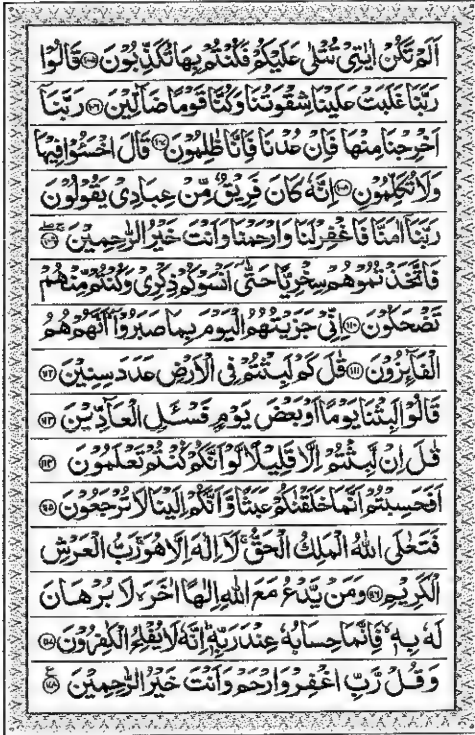 اَلَمْ تَكُنْ اٰيٰتِىْ تُتْلٰى عَلَيْكُمْ فَكُنْتُمْ بِهَا تُكَذِّبُوْنَ ۝۱۰۵ قَالُوْا
رَبَّنَا غَلَبَتْ عَلَيْنَا شِقْوَتُنَا وَكُنَّا قَوْمًا ضَآلِّيْنَ ۝۱۰۶ رَبَّنَآ
اَخْرِجْنَا مِنْهَا فَاِنْ عُدْنَا فَاِنَّا ظٰلِمُوْنَ ۝۱۰۷ قَالَ اخْسَـُٔوْا فِيْهَا
وَلَا تُكَلِّمُوْنِ ۝۱۰۸ اِنَّهٗ كَانَ فَرِيْقٌ مِّنْ عِبَادِىْ يَقُوْلُوْنَ
رَبَّنَآ اٰمَنَّا فَاغْفِرْ لَنَا وَارْحَمْنَا وَاَنْتَ خَيْرُ الرّٰحِمِيْنَ ۝۱۰۹
فَاتَّخَذْتُمُوْهُمْ سِخْرِيًّا حَتّٰٓى اَنْسَوْكُمْ ذِكْرِىْ وَكُنْتُمْ مِّنْهُمْ
تَضْحَكُوْنَ ۝۱۱۰ اِنِّىْ جَزَيْتُهُمُ الْيَوْمَ بِمَا صَبَرُوْٓا اَنَّهُمْ هُمُ
الْفَآئِزُوْنَ ۝۱۱۱ قٰلَ كَمْ لَبِثْتُمْ فِى الْاَرْضِ عَدَدَ سِنِيْنَ ۝۱۱۲
قَالُوْا لَبِثْنَا يَوْمًا اَوْ بَعْضَ يَوْمٍ فَسْـَٔلِ الْعَآدِّيْنَ ۝۱۱۳
قٰلَ اِنْ لَّبِثْتُمْ اِلَّا قَلِيْلًا لَّوْ اَنَّكُمْ كُنْتُمْ تَعْلَمُوْنَ ۝۱۱۴
اَفَحَسِبْتُمْ اَنَّمَا خَلَقْنٰكُمْ عَبَثًا وَّاَنَّكُمْ اِلَيْنَا لَا تُرْجَعُوْنَ ۝۱۱۵
فَتَعٰلَى اللّٰهُ الْمَلِكُ الْحَقُّ ۚ لَآ اِلٰهَ اِلَّا هُوَ ۚ رَبُّ الْعَرْشِ
الْكَرِيْمِ ۝۱۱۶ وَمَنْ يَّدْعُ مَعَ اللّٰهِ اِلٰهًا اٰخَرَ ۙ لَا بُرْهَانَ
لَهٗ بِهٖ ۙ فَاِنَّمَا حِسَابُهٗ عِنْدَ رَبِّهٖ ؕ اِنَّهٗ لَا يُفْلِحُ الْكٰفِرُوْنَ ۝۱۱۷
وَقُلْ رَّبِّ اغْفِرْ وَارْحَمْ وَاَنْتَ خَيْرُ الرّٰحِمِيْنَ ۝۱۱۸ ع